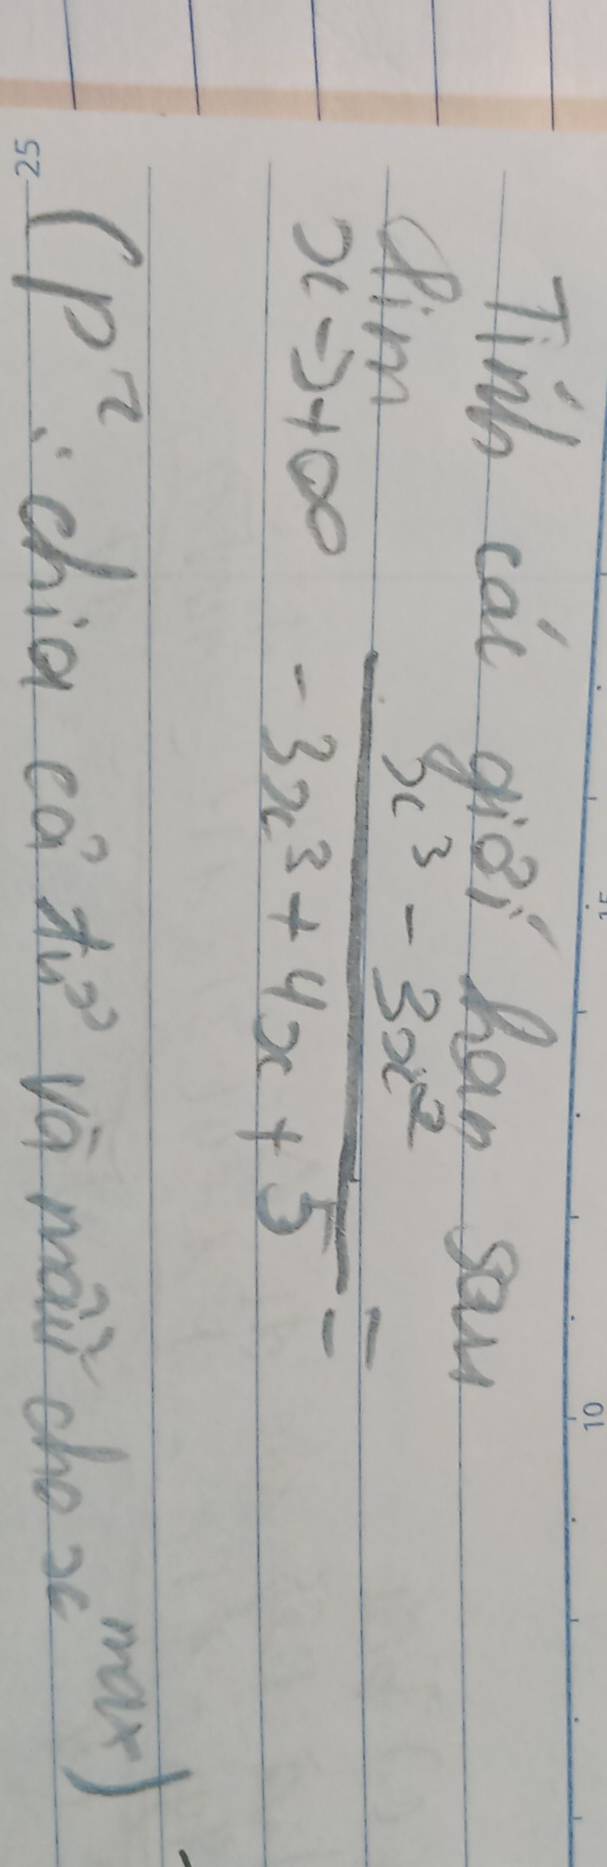 Tính các giới hạn sau
lim x³ - 3x²
x→+∞ -3x³ + 4x + 5 =
(p² : chia cả tử và mẫu cho x^max)
25
15
10